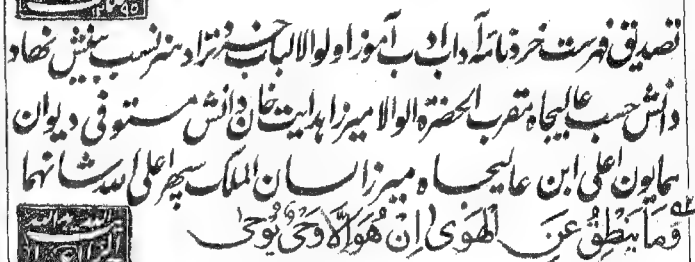 تصدیق فهرست خردنامه آداب ادب آموز اولوالالباب خرد نژاد هنر نسب بینش نهاد
دانش حسب عالیجاه مقرب الحضرة الوالا میرزا هدایت خان دانش مستوفی دیوان
همایون اعلی ابن عالیجاه میرزا لسان الملک سپهر اعلی الله شانهما
وَمَا یَنْطِقُ عَنِ الْهَوَیٰ اِنْ هُوَ اِلَّا وَحْیٌ یُوحیٰ